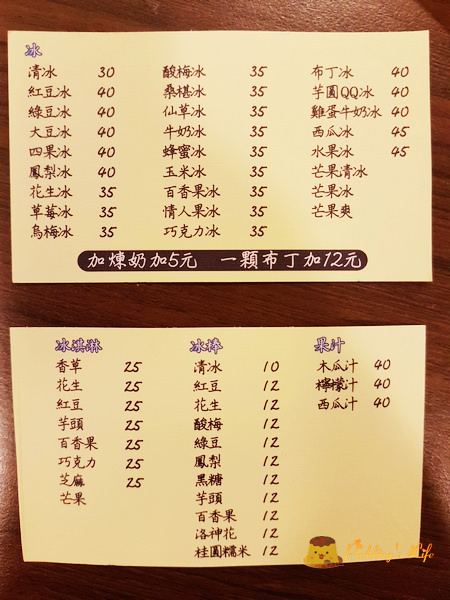 冰
清冰 30 酸梅冰 35 布丁冰 40
紅豆冰 40 桑椹冰 35 芋圓QQ冰 40
綠豆冰 40 仙草冰 35 雞蛋牛奶冰 40
大豆冰 40 牛奶冰 35 西瓜冰 45
四果冰 40 蜂蜜冰 35 水果冰 45
鳳梨冰 40 玉米冰 35 芒果清冰
花生冰 35 百香果冰 35 芒果冰
草莓冰 35 情人果冰 35 芒果爽
烏梅冰 35 巧克力冰 35
加煉奶加5元 一顆布丁加12元
冰淇淋 冰棒 果汁
香草 25 清冰 10 木瓜汁 40
花生 25 紅豆 12 檸檬汁 40
紅豆 25 花生 12 西瓜汁 40
芋頭 25 酸梅 12
百香果 25 綠豆 12
巧克力 25 鳳梨 12
芝麻 25 黑糖 12
芒果 芋頭 12
百香果 12
洛神花 12
桂圓糯米 12
Pudding's Life